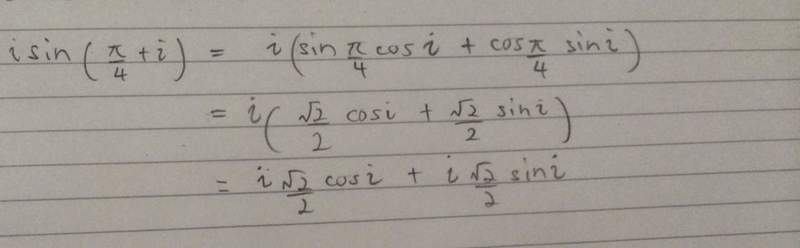 i sin(π/4 + i) = i(sin π/4 cos i + cos π/4 sin i)
= i(√2/2 cos i + √2/2 sin i)
= i √2/2 cos i + i √2/2 sin i